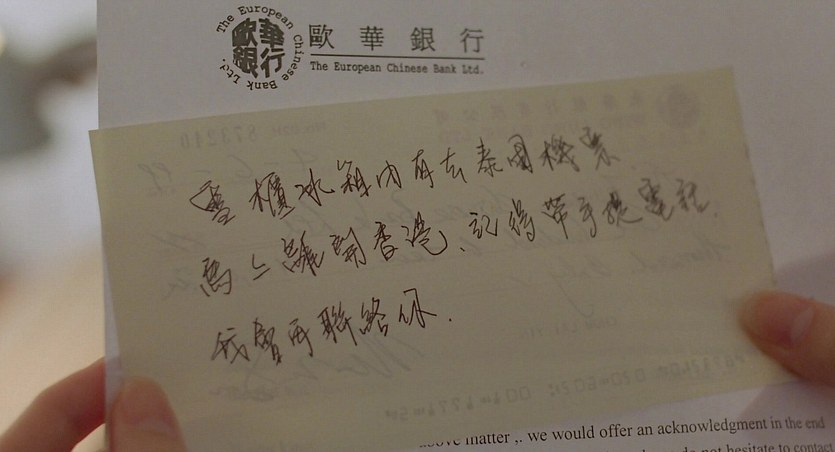 The European Chinese Bank Ltd.
歐華銀行
歐華銀行
The European Chinese Bank Ltd.
873210
雪櫃冰箱內有去泰國機票
馬上離開香港、記得帶手提電話.
我會再聯絡你.
above matter ,. we would offer an acknowledgment in the end
do not hesitate to contact